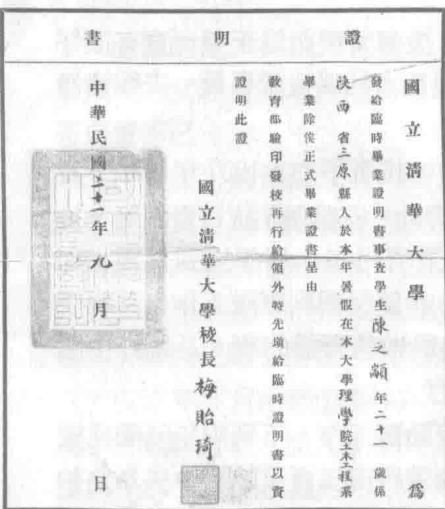 證明書
國立清華大學 為
發給臨時畢業證明書事查學生陳之顓年二十 歲係
陝西省三原縣人於本年暑假在本大學理學院土木工程系
畢業除俟正式畢業證書呈由
教育部驗印發校再行給領外特先頒給臨時證明書以資
證明此證
國立清華大學校長梅貽琦
中華民國二十年九月 日